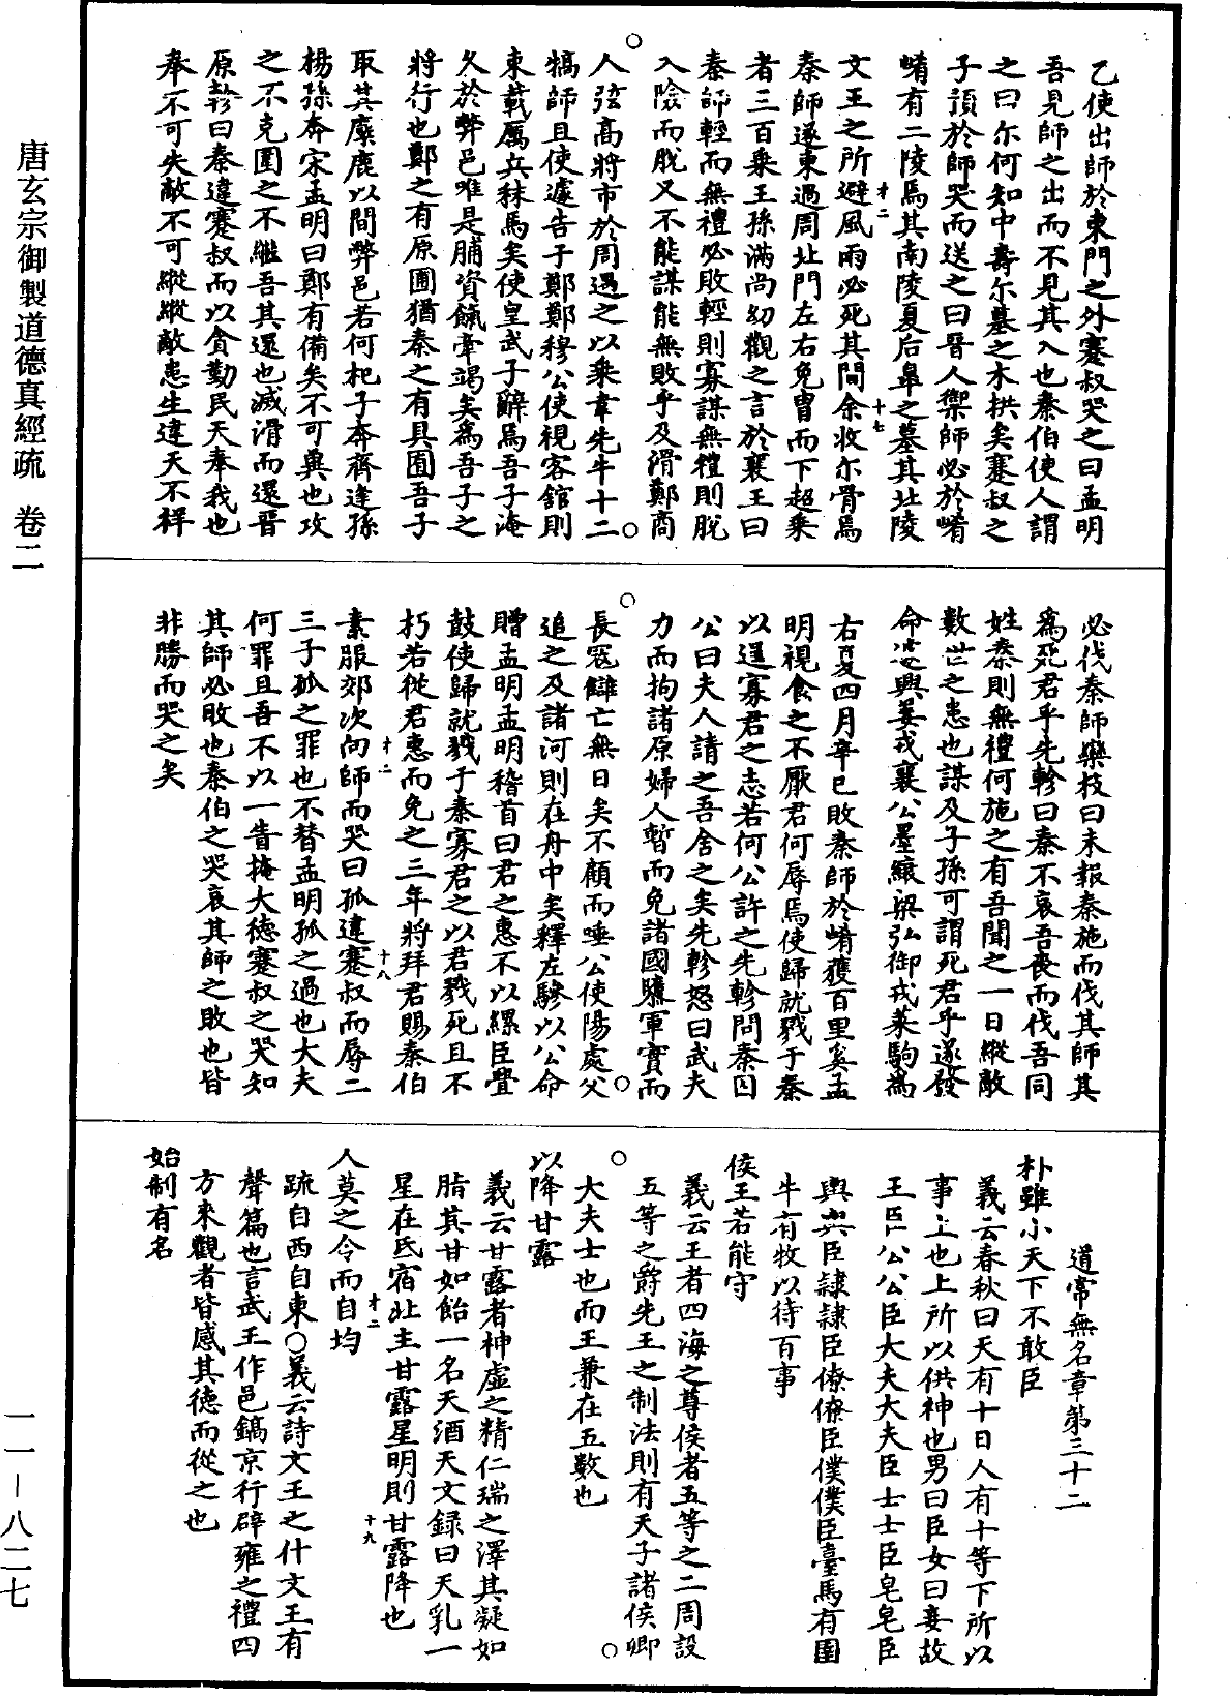 乙使出師於東門之外蹇叔哭之曰孟明
吾見師之出而不見其入也秦伯使人謂
之曰尔何知中壽尔墓之木拱矣蹇叔之
子預於師哭而送之曰晉人禦師必於崤
崤有二陵焉其南陵夏后皐之墓其北陵
文王之所避風雨必死其間余收尔骨焉
秦師遂東過周北門左右免胄而下超乗
者三百乗王孫滿尚幼觀之言於襄王曰
秦師輕而無禮必敗輕則寡謀無禮則脫
入險而脫又不能謀能無敗乎及滑鄭商
人弦高將市於周遇之以乗韋先牛十二
犒師且使遽告于鄭鄭穆公使視客舘則
束載厲兵秣馬矣使皇武子辭焉吾子淹
久於弊邑唯是脯資餼牽竭矣為吾子之
將行也鄭之有原圃猶秦之有具囿吾子
取其麋鹿以間弊邑若何杞子奔齊逢孫
楊孫奔宋孟明曰鄭有備矣不可兾也攻
之不克圍之不繼吾其還也滅滑而還晉
原軫曰秦違蹇叔而以貪勤民天奉我也
奉不可失敵不可縱縱敵患生違天不祥
必伐秦師欒枝曰未報秦施而伐其師其
為死君乎先軫曰秦不哀吾喪而伐吾同
姓秦則無禮何施之有吾聞之一日縱敵
數世之患也謀及子孫可謂死君乎遂發
命遽興姜戎襄公墨縗梁弘御戎萊駒為
右夏四月辛巳敗秦師於崤獲百里奚孟
明視食之不厭君何辱焉使歸就戮于秦
以逞寡君之志若何公許之先軫問秦囚
公曰夫人請之吾舍之矣先軫怒曰武夫
力而拘諸原婦人暫而免諸國驕軍實而
長寇讎亡無日矣不顧而唾公使陽處父
追之及諸河則在舟中矣釋左驂以公命
贈孟明孟明稽首曰君之惠不以纍臣舋
鼓使歸就戮于秦寡君之以君戮死且不
朽若從君惠而免之三年將拜君賜秦伯
素服郊次向師而哭曰孤違蹇叔而辱二
三子孤之罪也不替孟明孤之過也大夫
何罪且吾不以一眚掩大德蹇叔之哭知
其師必敗也秦伯之哭哀其師之敗也皆
非勝而哭之矣
道常無名章第三十二
朴雖小天下不敢臣
義云春秋曰天有十日人有十等下所以
事上也上所以供神也男曰臣女曰妾故
王臣公公臣大夫大夫臣士士臣皂皂臣
輿輿臣隸隸臣僚僚臣僕僕臣臺馬有圉
牛有牧以待百事
侯王若能守
義云王者四海之尊侯者五等之二周設
五等之爵先王之制法則有天子諸侯卿
大夫士也而王兼在五數也
以降甘露
義云甘露者神虛之精仁瑞之澤其凝如
脂其甘如飴一名天酒天文録曰天乳一
星在氐宿北主甘露星明則甘露降也
人莫之令而自均
䟽自西自東○義云詩文王之什文王有
聲篇也言武王作邑鎬京行辟雍之禮四
方來觀者皆感其德而從之也
始制有名
唐玄宗御製道德真經疏 卷二
一一－八二七
才二
十七
才二
十八
才二
十九